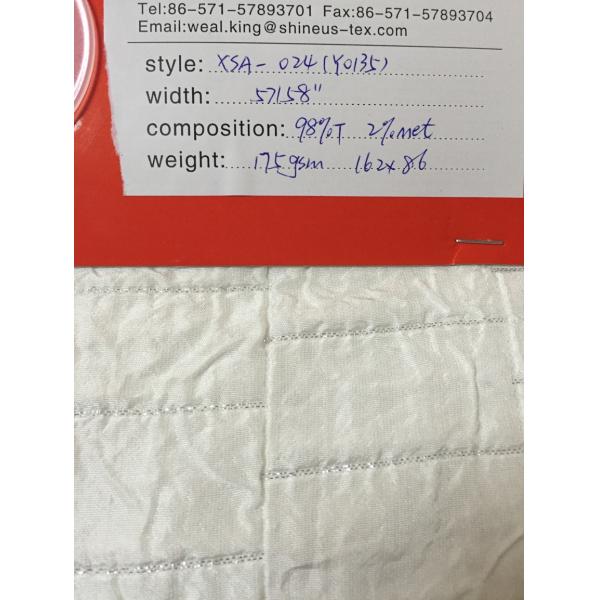 Tel:86-571-57893701 Fax:86-571-57893704
Email:weal.king@shineus-tex.com
style: XSA-024(Y0135)
width: 57/58"
composition: 98%T 2%met
weight: 175gsm 162x86